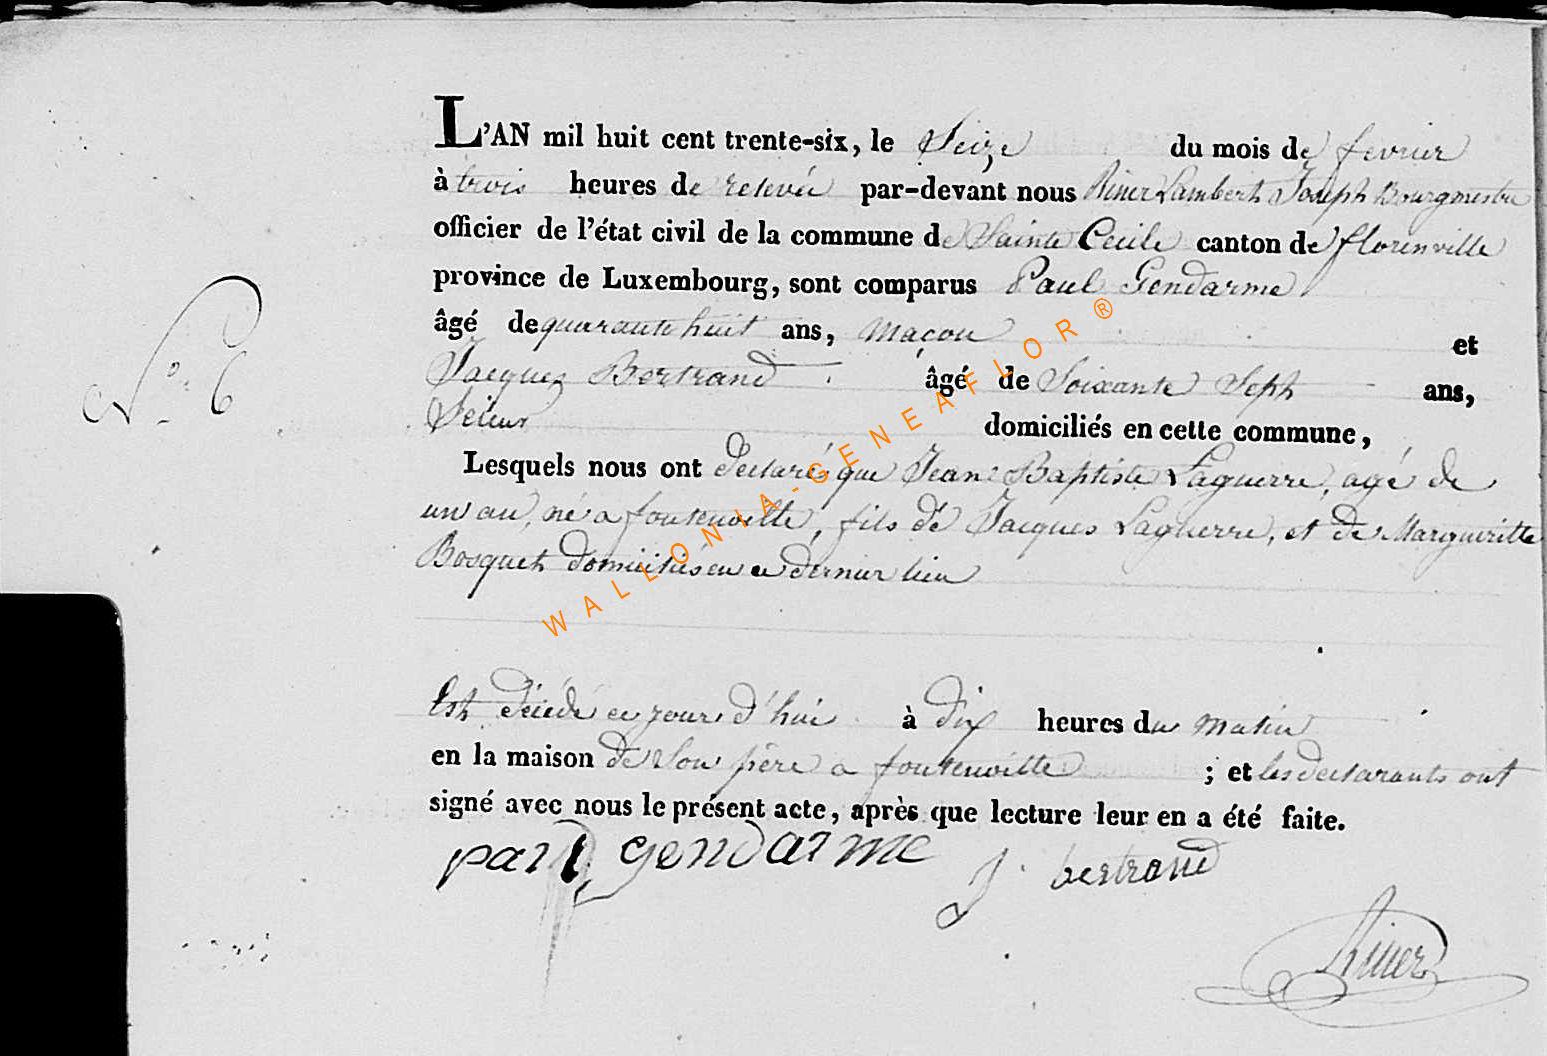 L'AN mil huit cent trente-six, le Seize du mois de fevrier
à trois heures de relevée par-devant nous Riner Lambert Joseph Bourgmestre
officier de l'état civil de la commune de Sainte Cecile canton de florenville
province de Luxembourg, sont comparus Paul Gendarme
âgé de quarante huit ans, maçon et
Jacques Bertrand âgé de Soixante Sept ans,
N° 6
domiciliés en cette commune,
Lesquels nous ont declaré que Jean Baptiste Laguerre, agé de
un an, né a fontenoille, fils de Jacques Laguerre, et de Margueritte
Bosquet domiciliés en ce dernier lieu
Est décédé ce jour d'hui à dix heures du matin
en la maison de Son père a fontenoille ; et les declarants ont
signé avec nous le présent acte, après que lecture leur en a été faite.
paul gendarme J. bertrand
Riner
WALLONIA-GENEAFLOR®